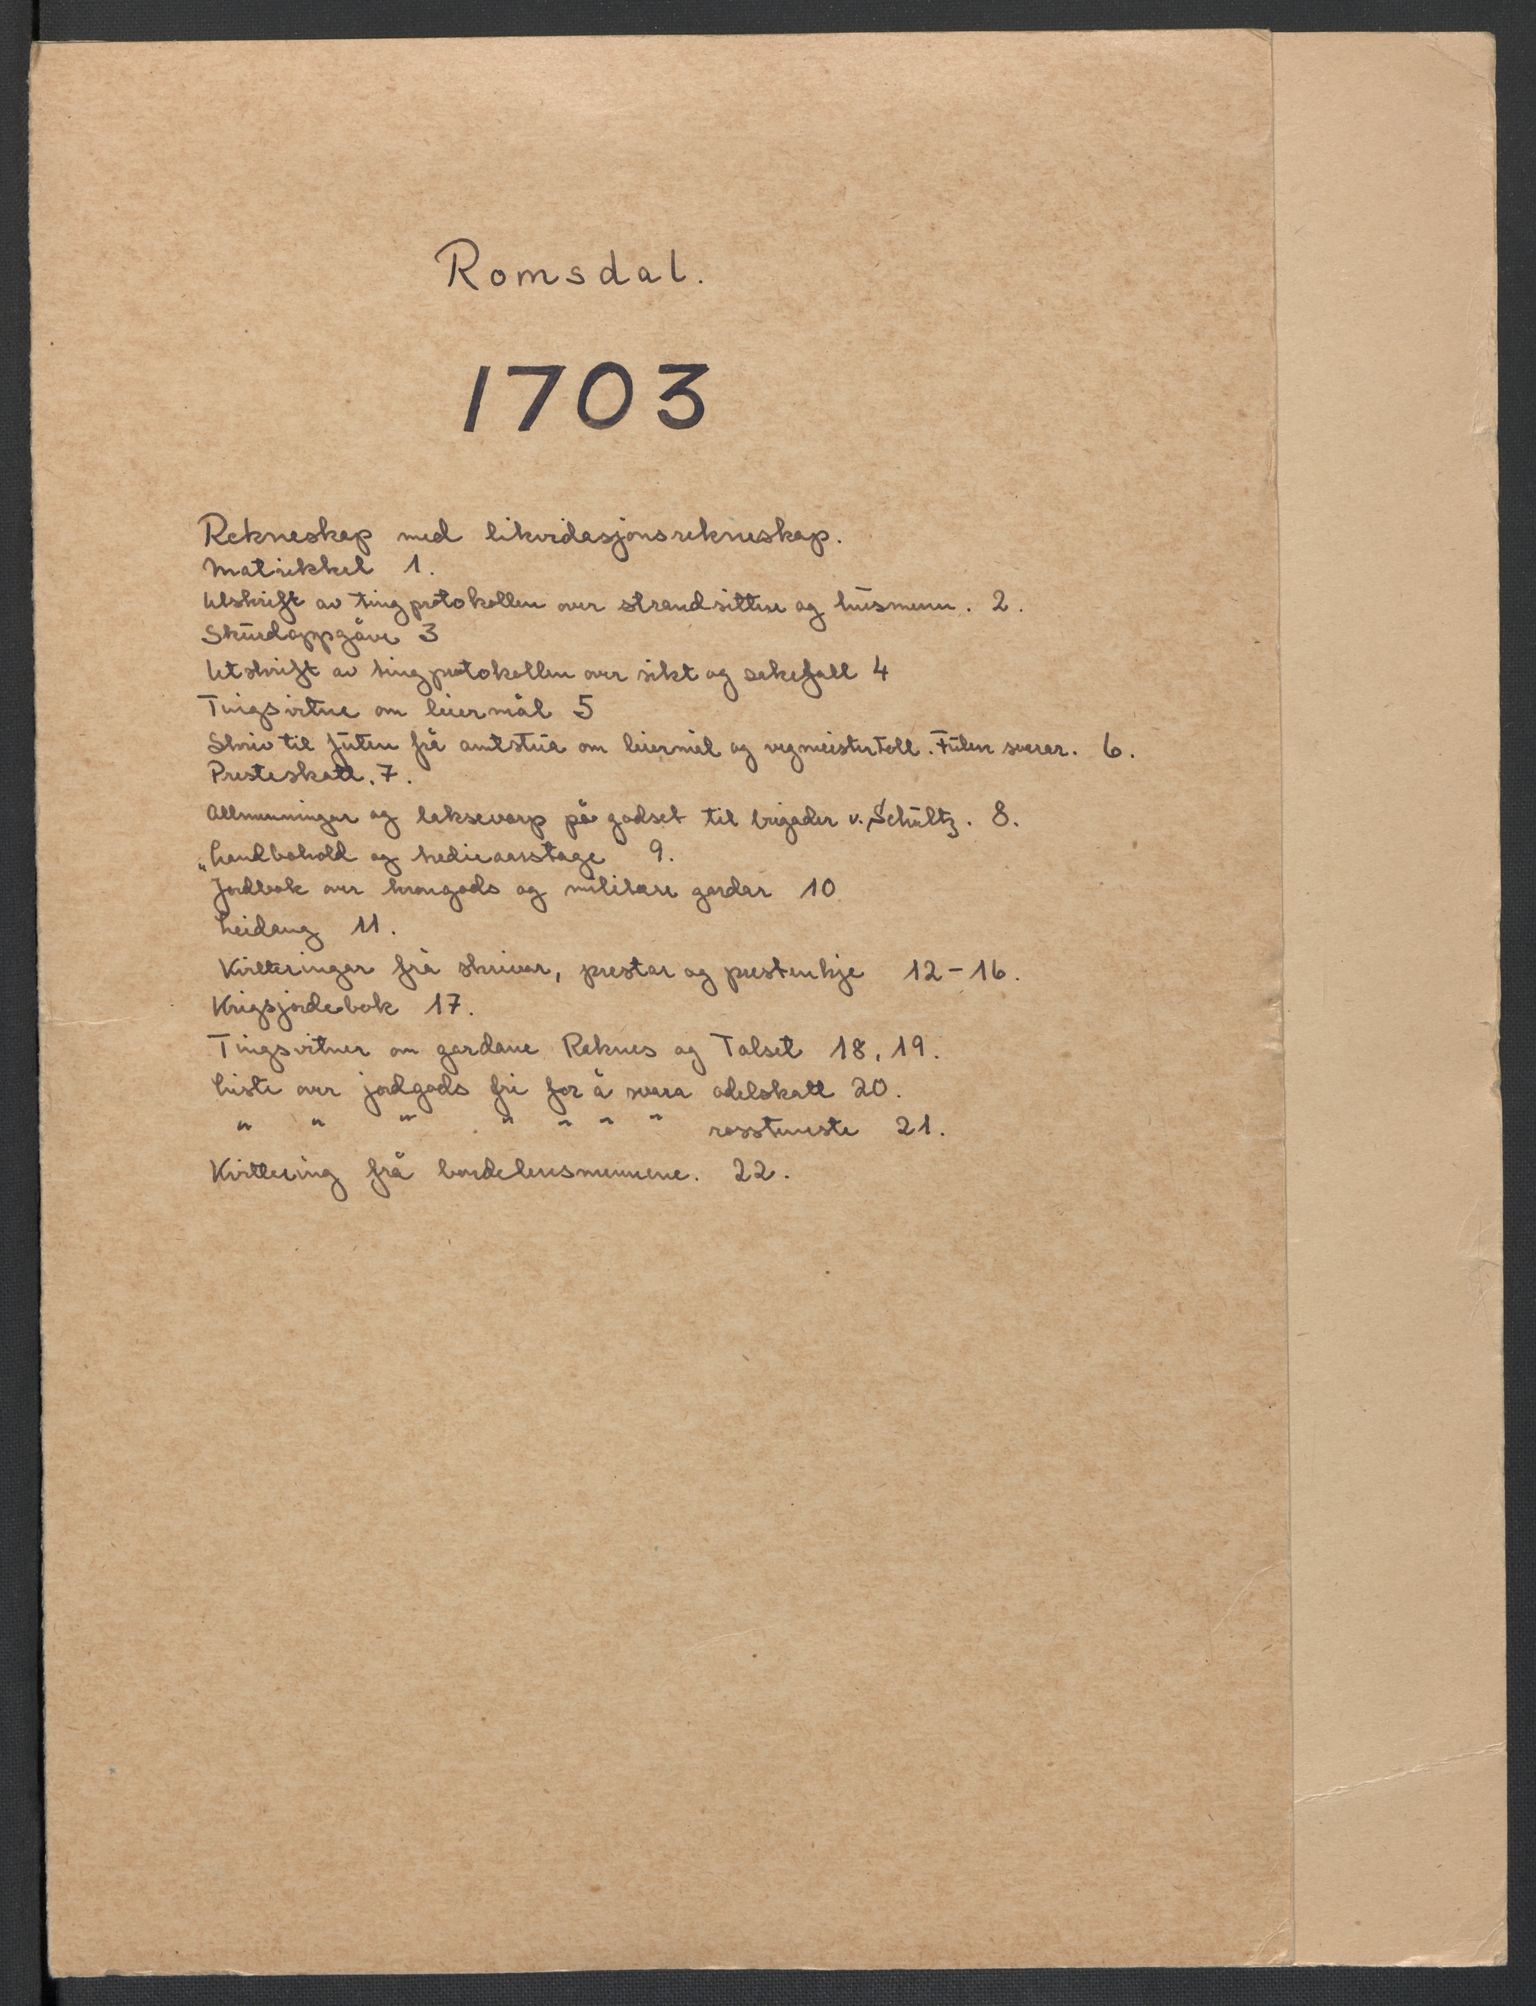 Romsdal.
1703
Rekneskap med likvidasjonsrekneskap.
Matrikkel 1.
Utskrift av tingprotokollen over strandsittere og husmenn. 2.
Skurdoppgåve 3
Utskrift av tingprotokollen over sikt og sakefall 4
Tingsvitne om leiermål 5
Skriv til futen frå amtstua om leiermål og vegmeistertoll. Futen svarar. 6.
Presteskatt. 7.
Allmenningar og laksevarp på godset til brigader v. Schultz. 8.
"Landbohold og tredieaarstage 9.
Jordbok over krongods og militære gardar 10
Leidang 11.
Kvitteringar frå skrivar, prestar og prestenkje 12-16.
Krigsjordebok 17.
Tingsvitner om gardane Reknes og Talset 18, 19.
Liste over jordgods fri for å svara odelskatt 20.
" " " " " " " rossteneste 21.
Kvittering frå bondelensmennene. 22.